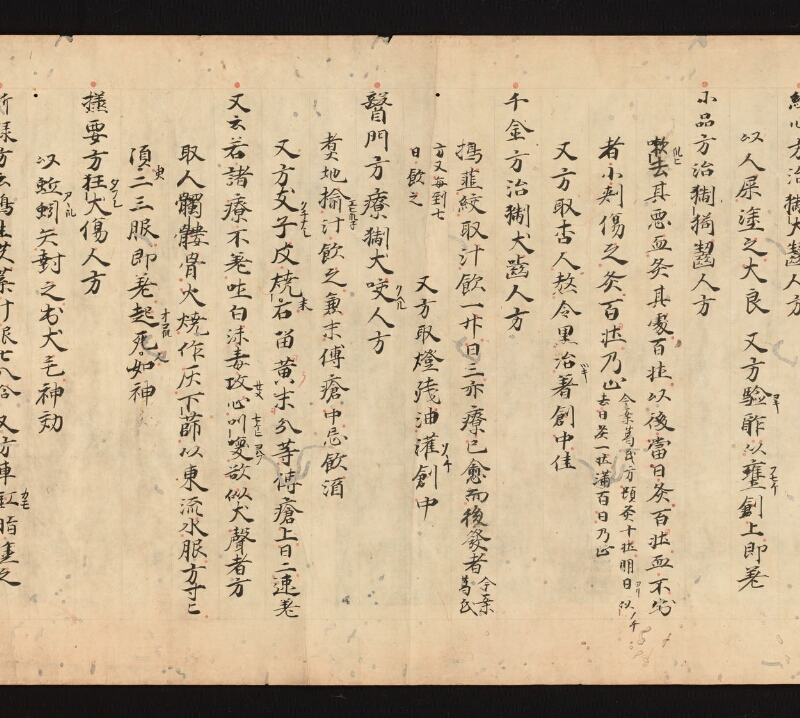 以人屎塗之大良 又方驗酢以壅創上即差
小品方治猘猲齧人方
嗽去其惡血灸其處百壯以後當日灸百壯血不出
者小刺傷之灸百壯乃止 今案葛氏方頓灸十壯明日以
去日灸一壯滿百日乃止
又方取杏人熬令黒治著創中佳
千金方治猘犬齧人方
搗韮絞取汁飲一升日三亦療已愈而後發者 今案葛氏
方又每到七
日飲之
又方取燈殘油灌創中
醫門方療猘犬咬人方
煑地揄汁飲之兼末傅瘡中忌飲酒
又方支子皮燒石留黄末分等傅瘡上日二速差
又云若諸療不差吐白沫毒攻心叫喚欲似犬聲者方
取人髑髏骨火燒作灰下篩以東流水服方寸匕
頂二三服即差起死如神
㨿要方狂犬傷人方
以蚯蚓矢封之出犬毛神効